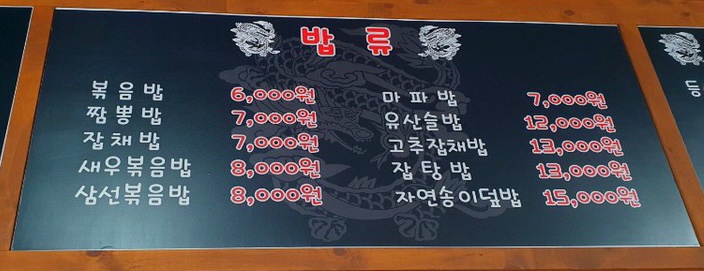 밥 류
볶음밥 6,000원
짬뽕밥 7,000원
잡채밥 7,000원
새우볶음밥 8,000원
삼선볶음밥 8,000원
마파밥 7,000원
유산슬밥 12,000원
고추잡채밥 13,000원
잡탕밥 13,000원
자연송이덮밥 15,000원
등